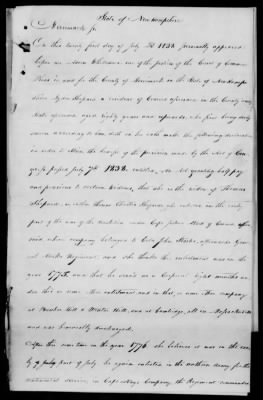 State of New Hampshire
Merrimack Ss.
On this twenty first day of July AD 1838 personally appeared
before me one of the Justices of the Court of Common
Pleas in and for the County of Merrimack in the State of New Hampshire
Lydia Shepard a resident of Concord aforesaid in the County and
State aforesaid, aged eighty years and upwards, who first being duly
sworn according to law, doth on her oath make the following declaration
in order to obtain the benefit of the provision made by the Act of Con-
gress passed July 7th 1838, entitled, An Act granting half pay
and pensions to certain widows, that she is the widow of Thomas
Shepard, a soldier who enlisted in the early
part of the war of the revolution under Capt Joshua Abbot of Concord afore-
said, whose company belonged to Colo John Starks, afterwards Gene-
ral Starks Regiment, and she thinks the enlistment was in the
year 1775, and that he served as a Corporal eight months un-
der this or some other enlistment and in that, or some other company
at Bunker Hill & Winter Hill, and at Cambridge, all in Massachusetts
and was honorably discharged.
After this mention in the year 1776, she believes it was in the
part of July he again enlisted in the northern Army for the
service, in Capt Company, the Regiment commanded